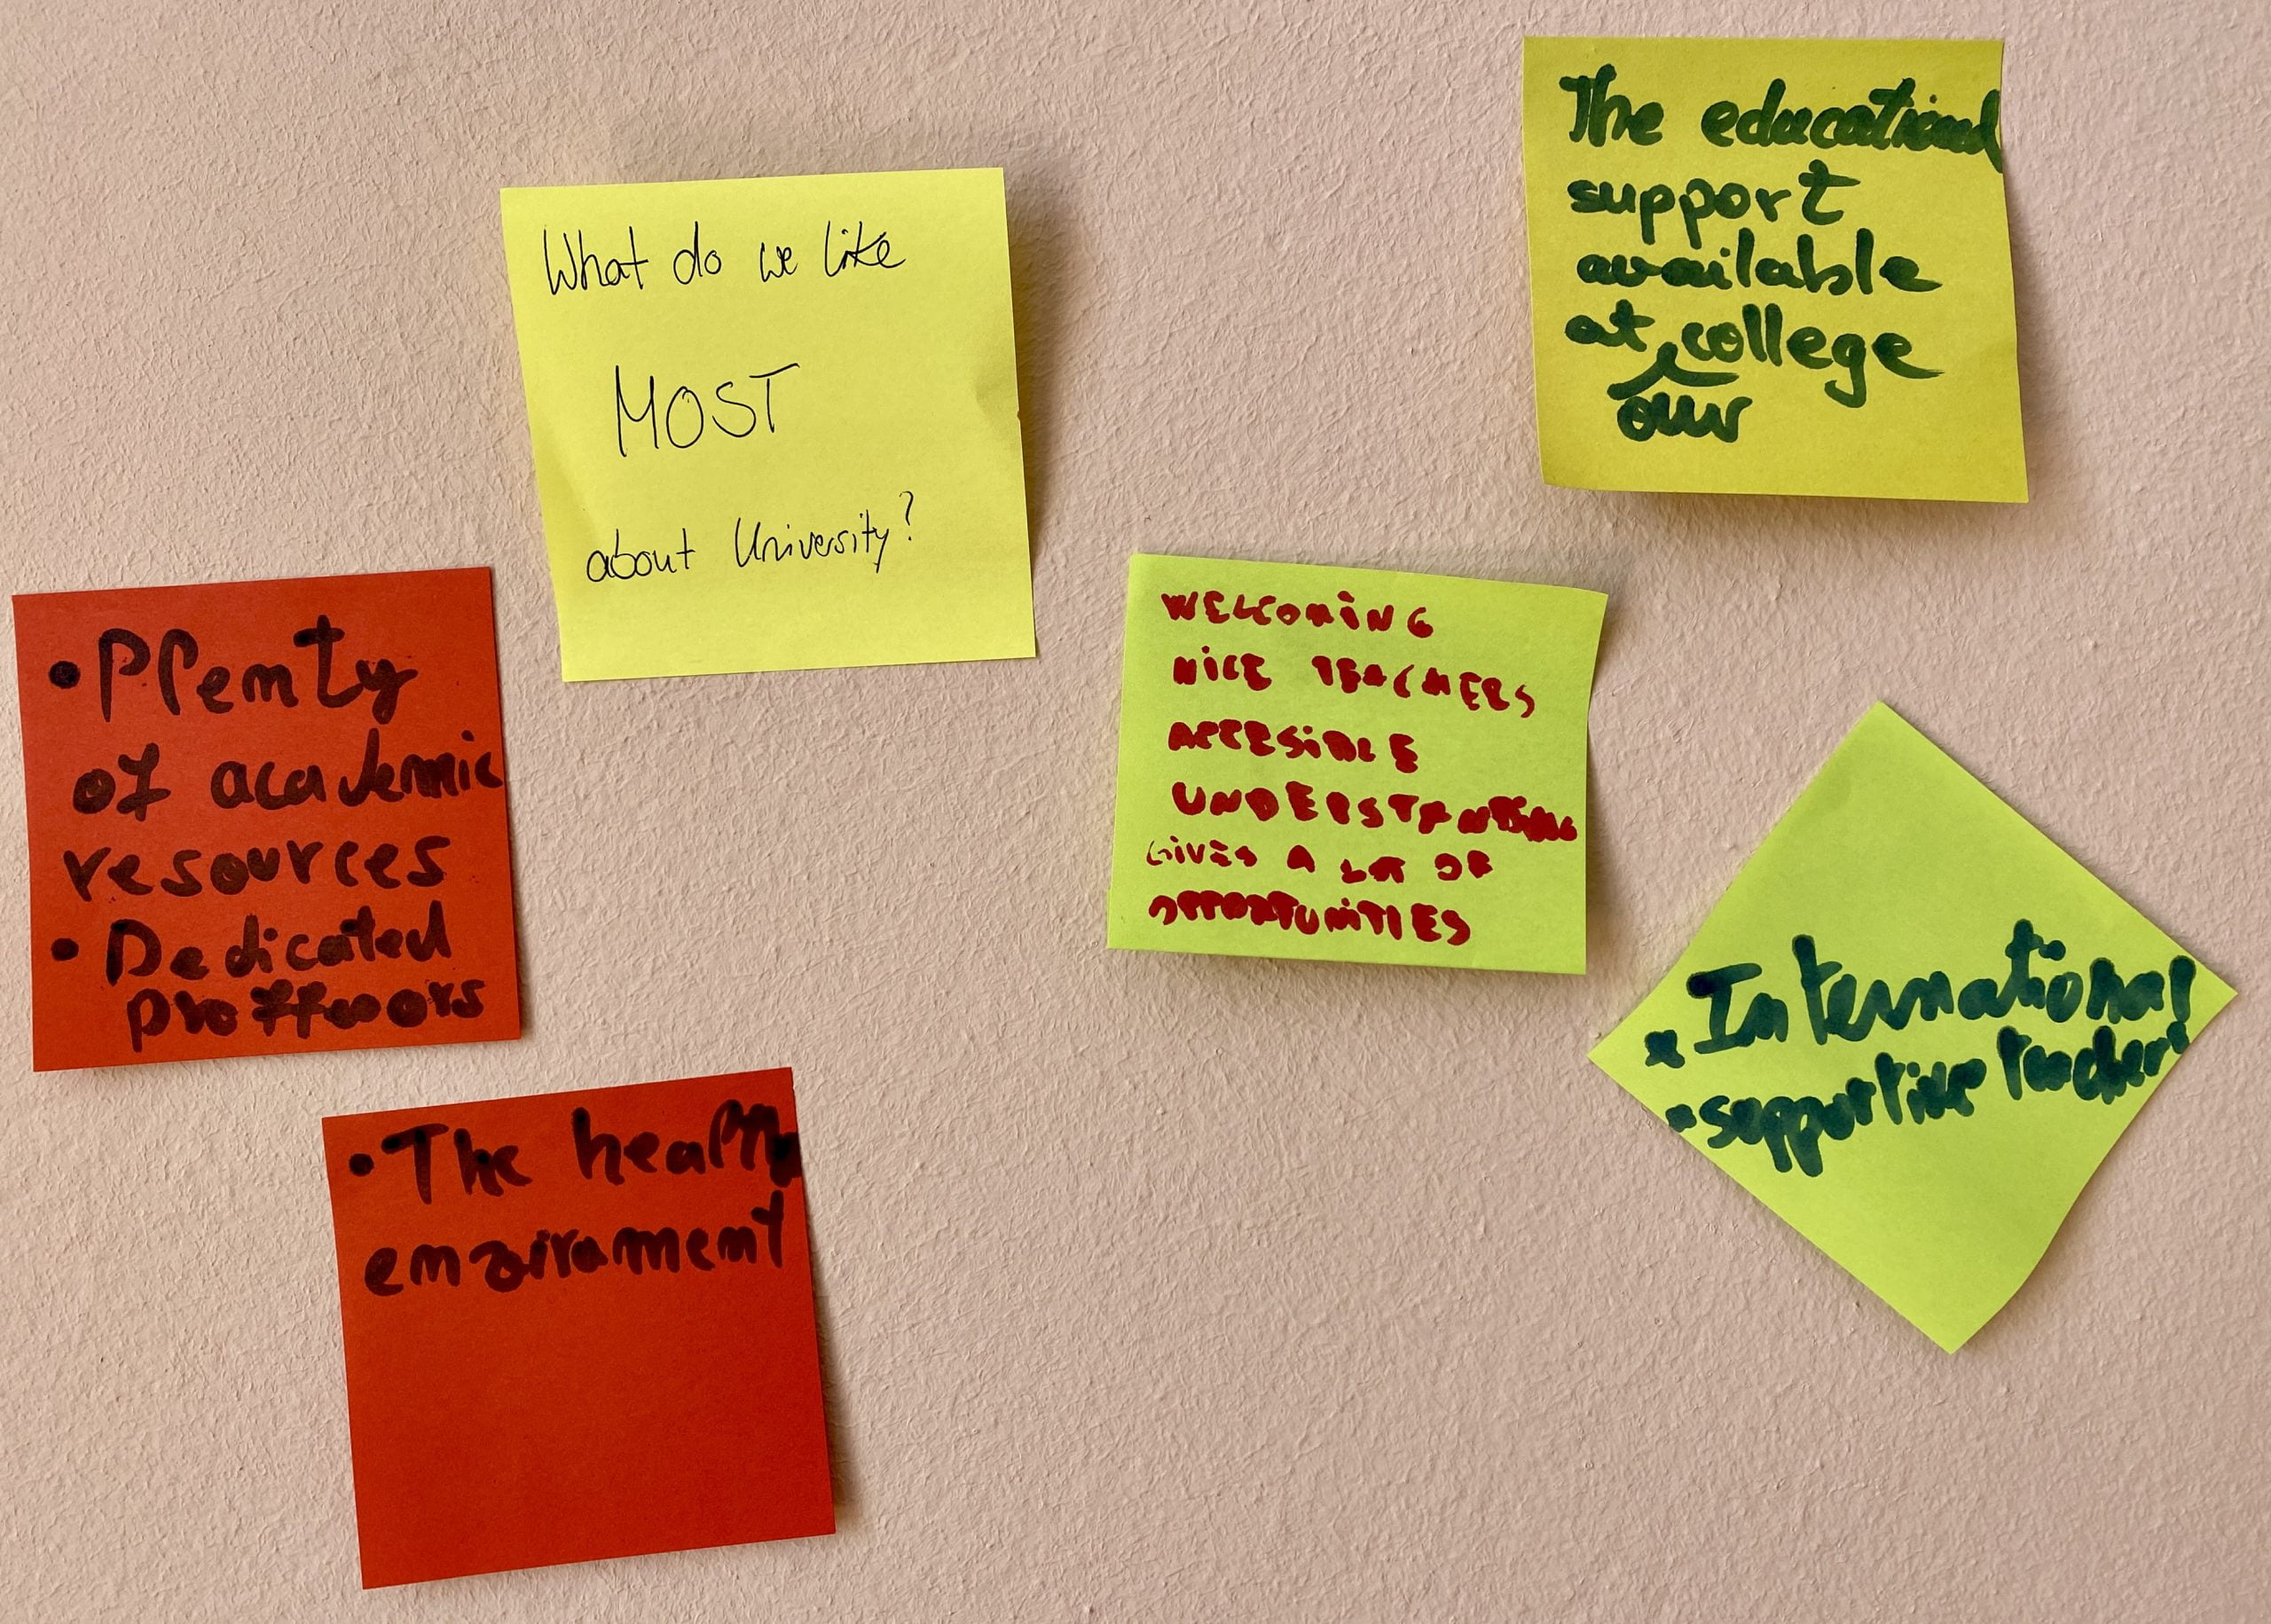 What do we like
MOST
about University?
The educational
support
available
at college
our
• Plenty
of academic
resources
• Dedicated
WELCOMING
NICE TEACHERS
ACCESIBLE
UNDERSTANDING
GIVES A LOT OF
OPPORTUNITIES
• International
• supportive teachers
• The healthy